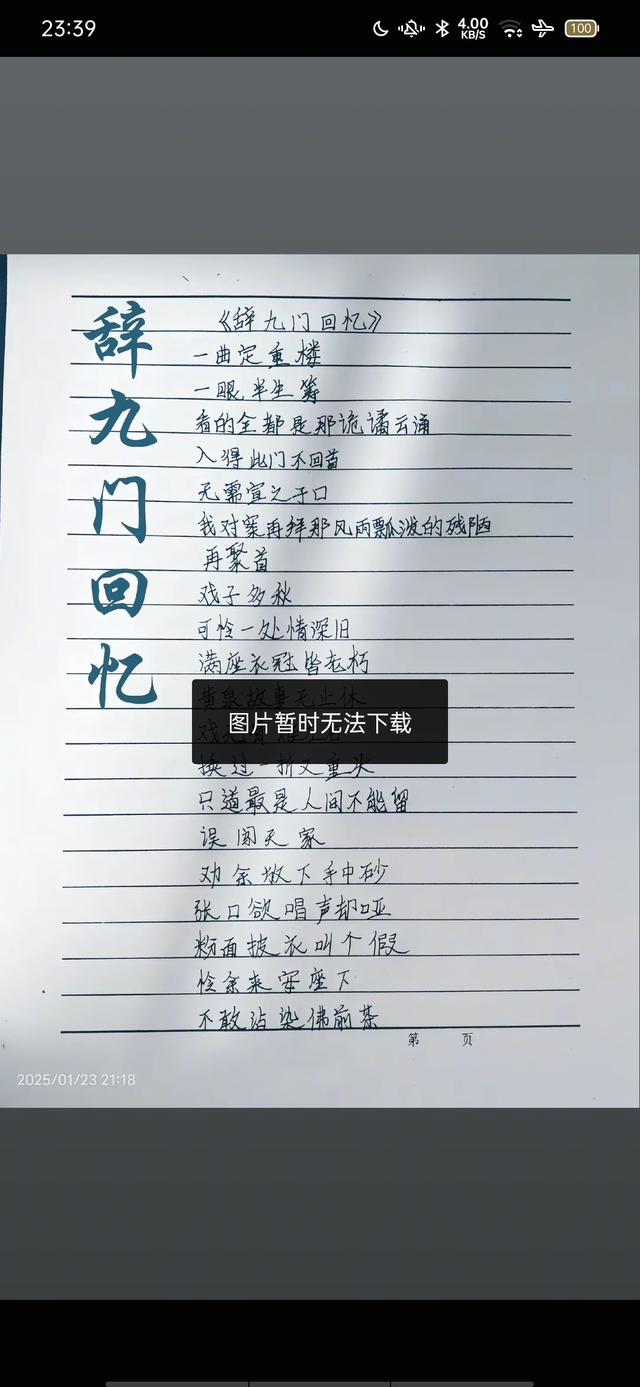 23:39
4.00
KB/S
100
辞九门回忆
《辞九门回忆》
一曲定重楼
一眼半生筹
看的全都是那诡谲云涌
入得此门不回首
无需宣之于口
我对案再拜那风雨瓢泼的残陋
再聚首
戏子多秋
可怜一处情深旧
满座衣冠皆老朽
黄泉故事无止休
图片暂时无法下载
换过一折又重头
只道最是人间不能留
误闯天家
劝余放下手中砂
张口欲唱声却哑
粉面披衣叫个假
怜余来安座下
不敢沾染佛前茶
第 页
2025/01/23 21:18